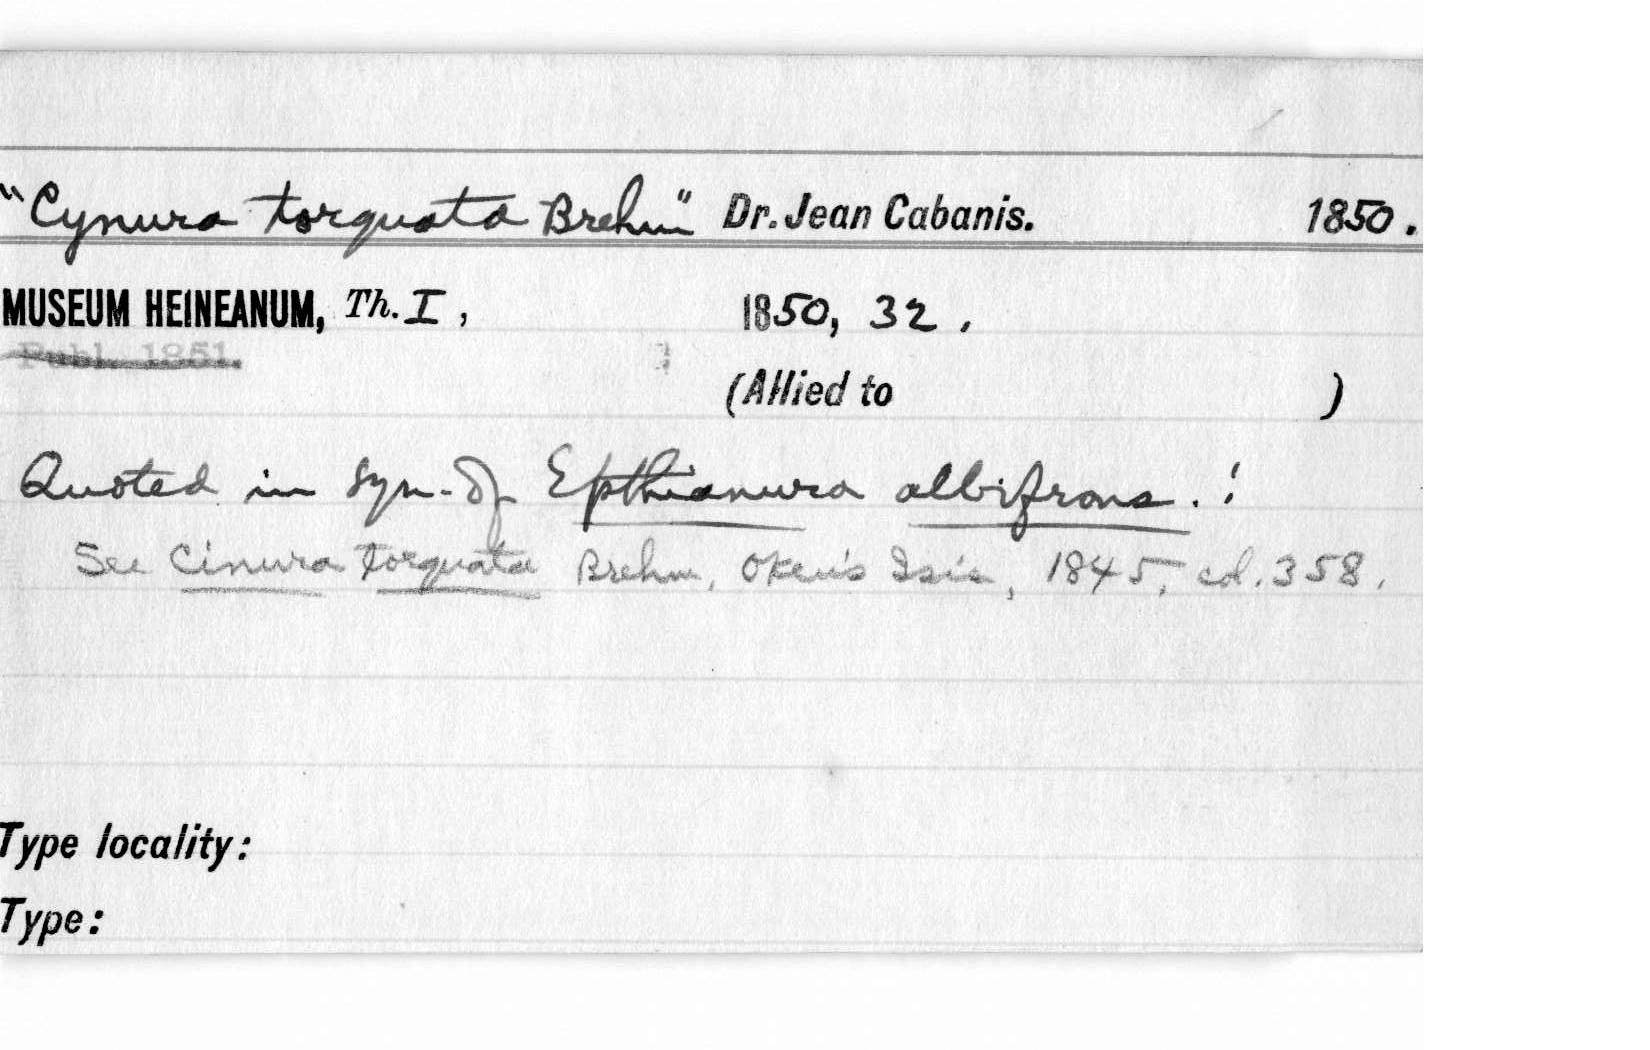 "Cynura torquata Brehm" Dr. Jean Cabanis. 1850.
MUSEUM HEINEANUM, Th. I, 1850, 32.
Publ. 1851.
(Allied to )
Quoted in syn. of Epthianura albifrons. !
See Cinura torquata Brehm, Oken's Isis, 1845, col. 358.
Type locality:
Type: